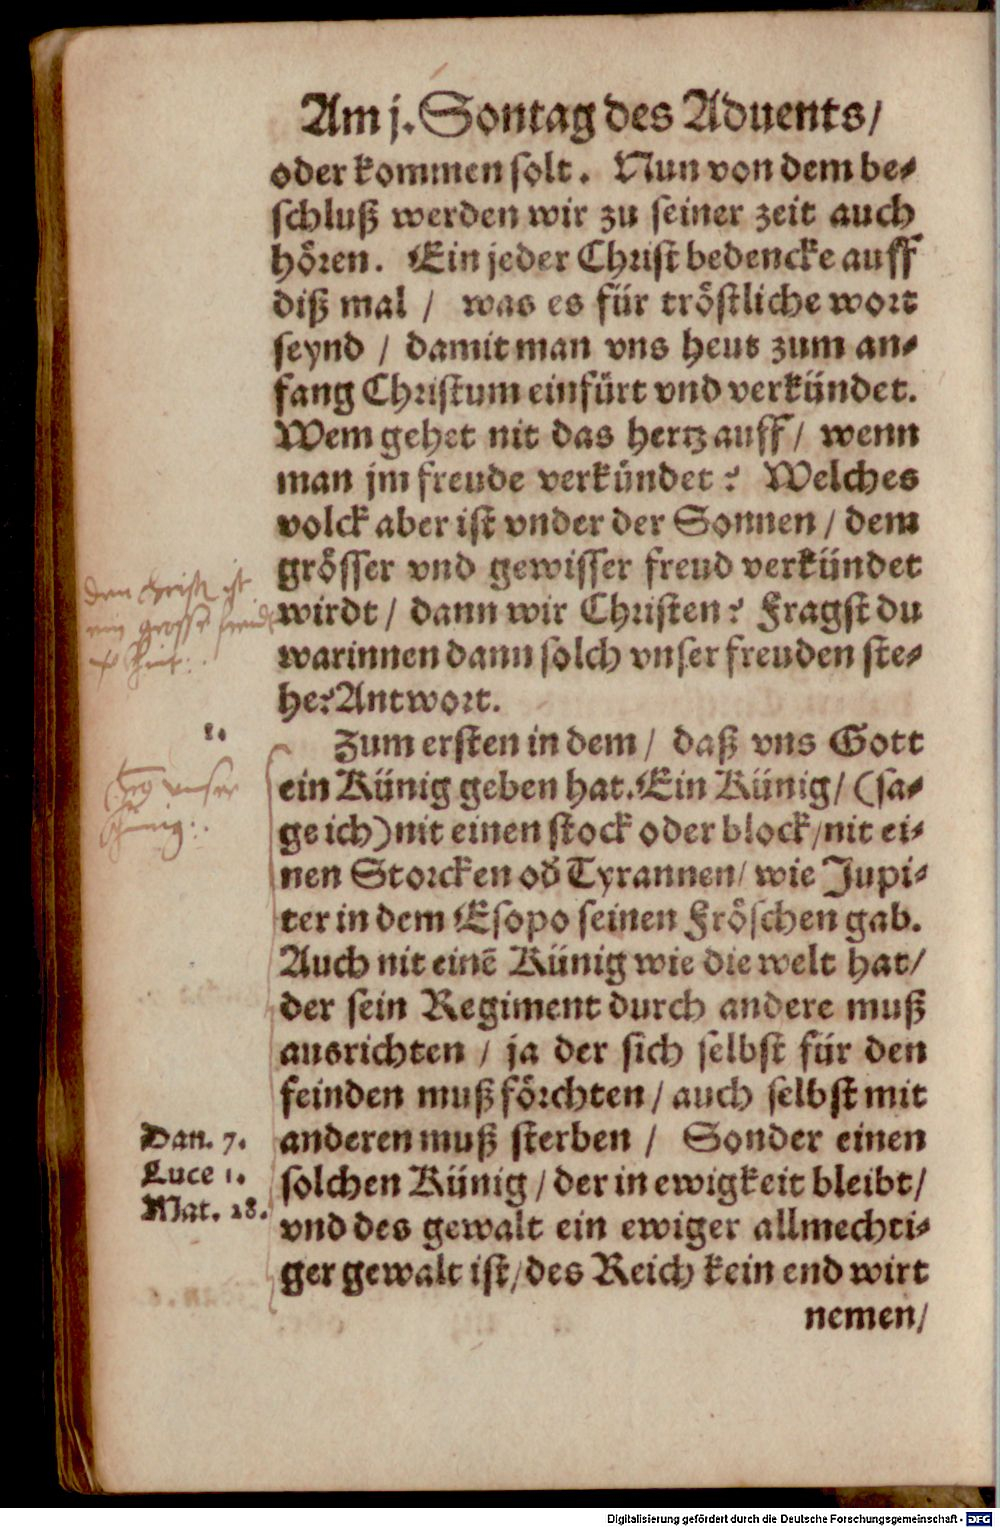 Am j. Sontag des Aduents/
oder kommen solt. Nun von dem be-
schluß werden wir zu seiner zeit auch
hören. Ein jeder Christ bedencke auff
diß mal / was es für tröstliche wort
seynd / damit man vns heut zum an-
fang Christum einfürt vnd verkündet.
Wem gehet nit das hertz auff / wenn
man jm freude verkündet? Welches
volck aber ist vnder der Sonnen / dem
grösser vnd gewisser freud verkündet
wirdt / dann wir Christen? Fragst du
warinnen dann solch vnser freuden ste-
he? Antwort.
Zum ersten in dem / daß vns Gott
ein Künig geben hat. Ein Künig / (sa-
ge ich) nit einen stock oder block / nit ei-
nen Storcken od̄ Tyrannen / wie Jupi-
ter in dem Esopo seinen Fröschen gab.
Auch nit einē Künig wie die welt hat /
der sein Regiment durch andere muß
ausrichten / ja der sich selbst für den
feinden muß förchten / auch selbst mit
anderen muß sterben / Sonder einen
solchen Künig / der in ewigkeit bleibt /
vnd des gewalt ein ewiger allmechti-
ger gewalt ist / des Reich kein end wirt
nemen /
ist
ein grosse freud
1.
vnser
Dan. 7.
Luce 1.
Mat. 28.
Digitalisierung gefördert durch die Deutsche Forschungsgemeinschaft - DFG